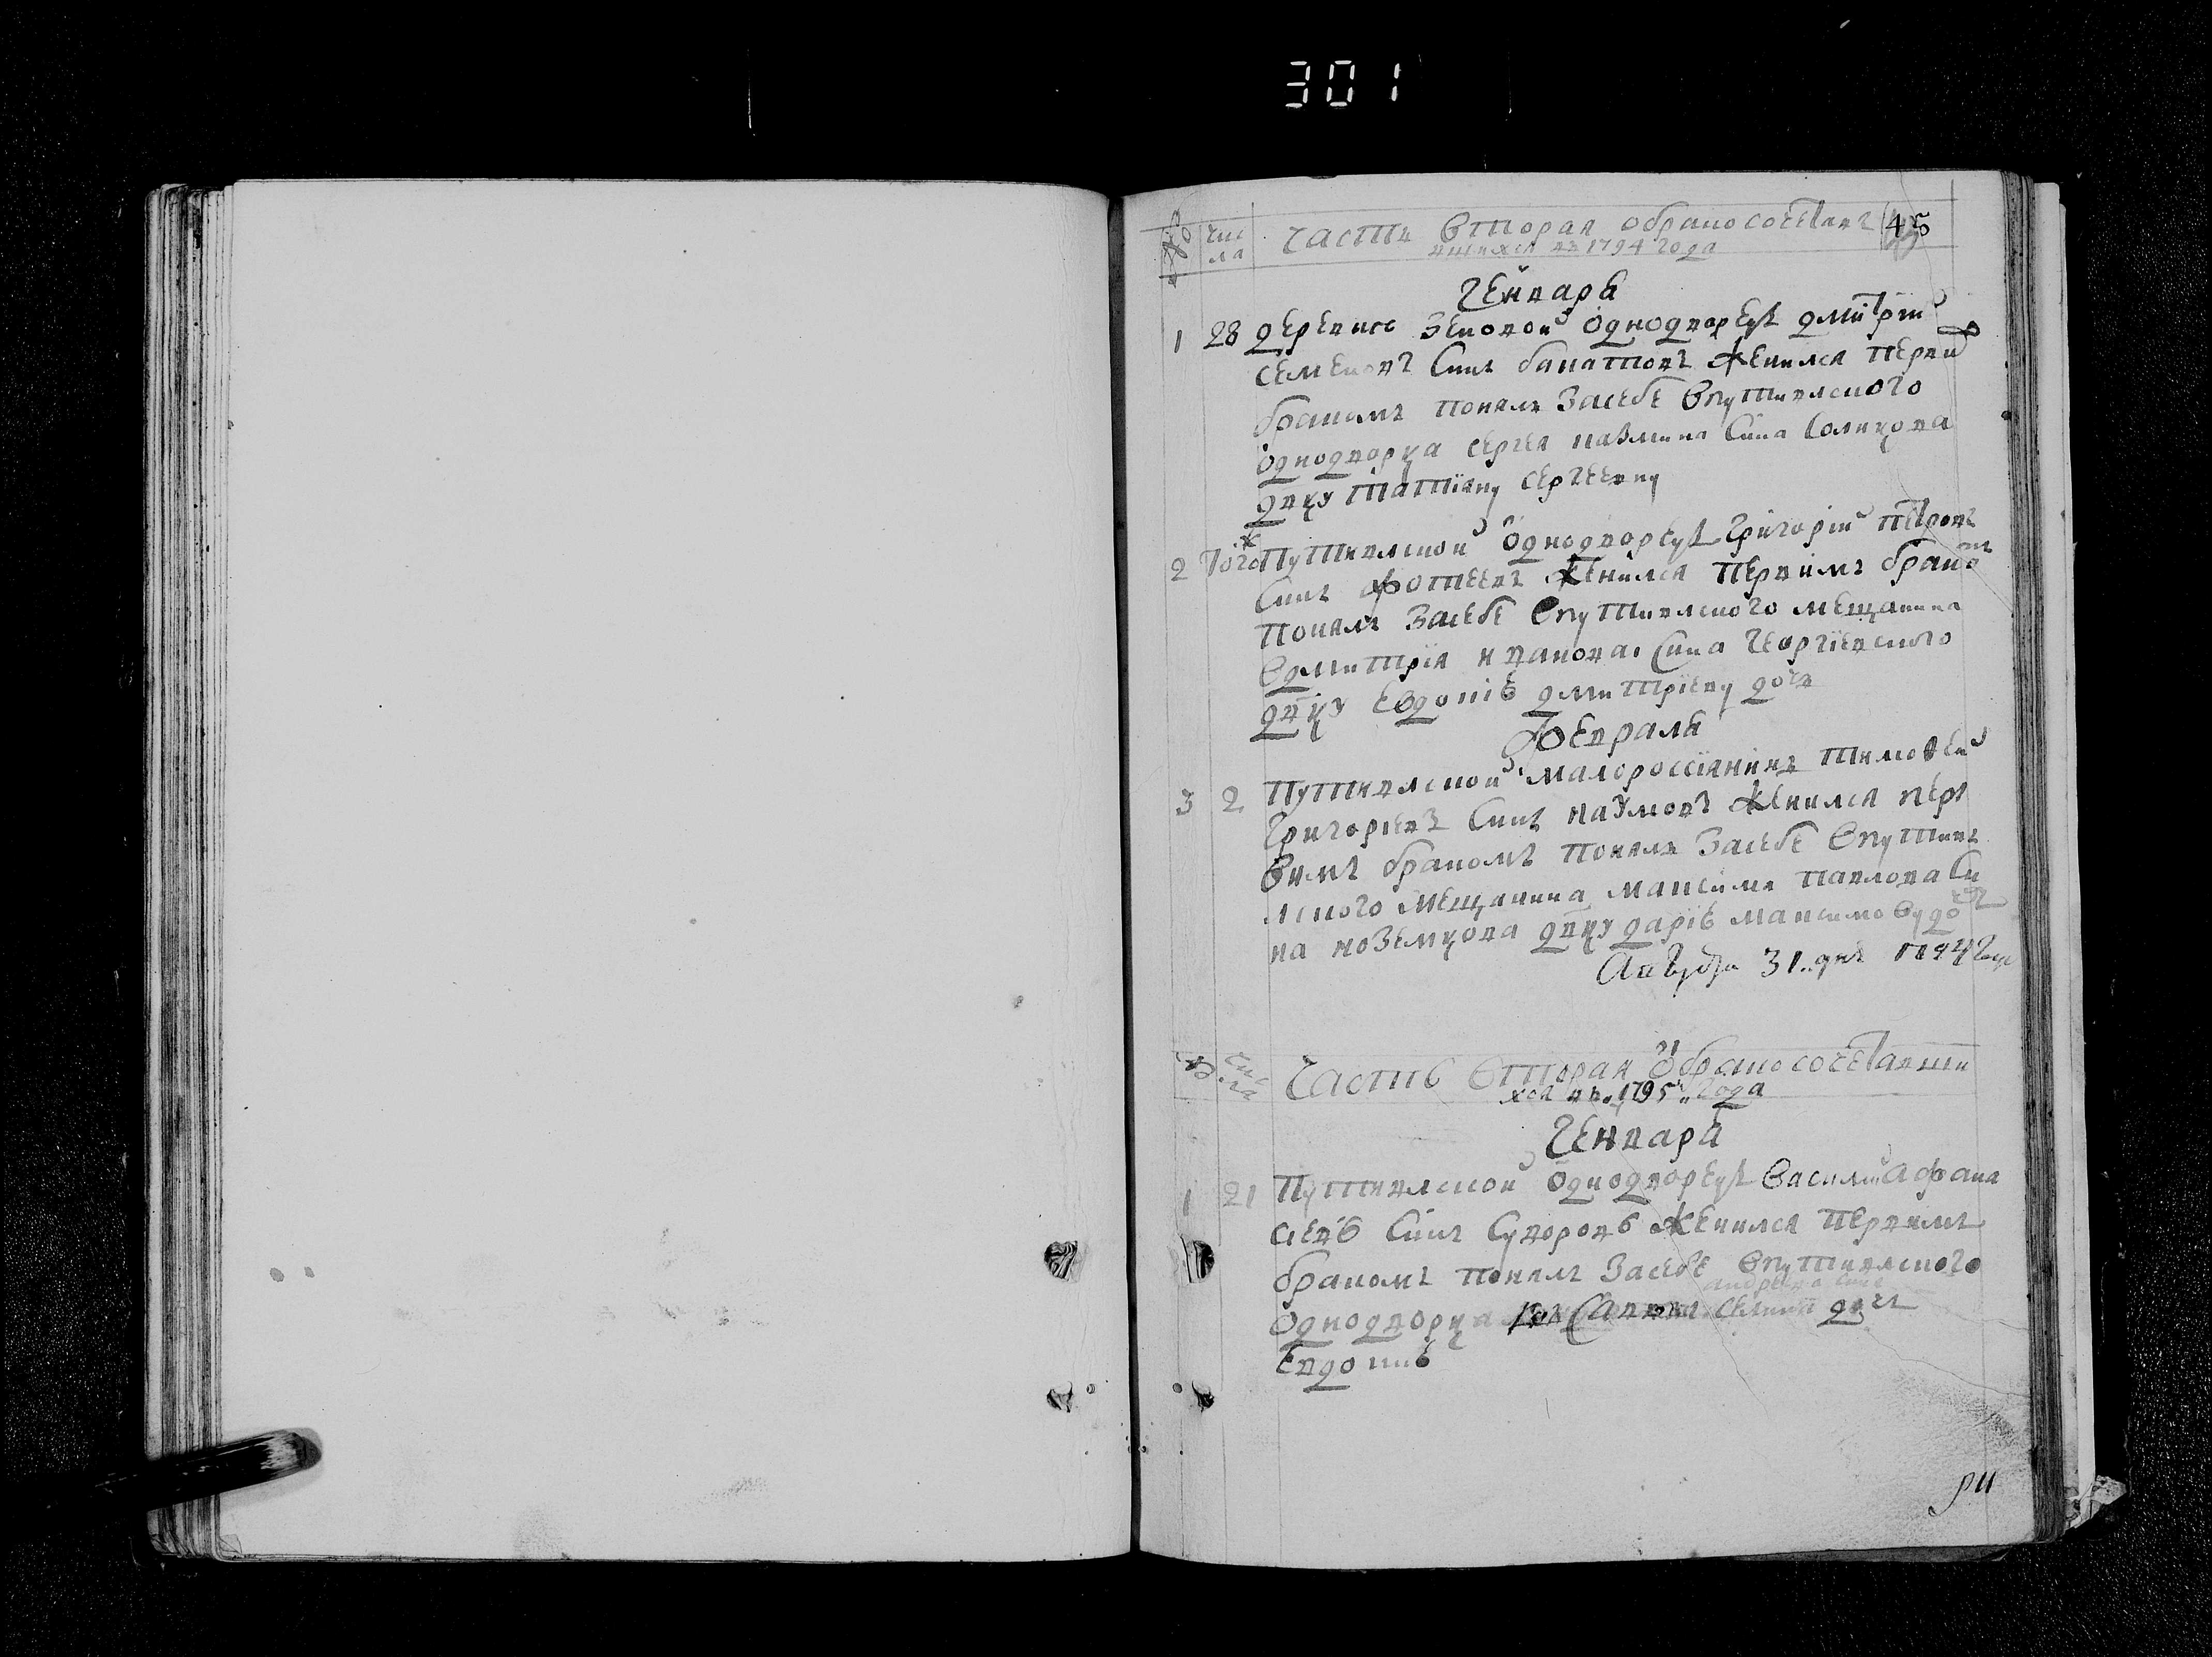 301
№ чис
ла
часть вторая обракосочетавъ
шихся въ 1794 года
45
генваря
1 28 деревне Зеновой однодворецъ дмитрий
семеновъ синъ бикатовъ женился перви
бракомъ понялъ засебе впутивлского
однодворца сергея казмина сина солнцова
дѣвку татияну сергеевну
2 того ж путивлской однодворецъ григорий петровъ
синъ фотеевъ женился первимъ бракомъ
понялъ засебе впутивлского мещанина
вдмитрия иванова сина георгиевского
дѣвку евдокию дмитриеву дочь
февраля
3 2 путивлской малороссиянинъ тимоѳей
григориевъ синъ наумовъ женился пер
вимъ бракомъ понялъ засебе впутивъ
лского мещанина максима павлова си
на иоземцова дѣвку дарию максимову дочь
Августа 31 дня 1794 года
№ чис
ла
часть вторая обракосочетавши
хся въ 1795 года
генваря
1 21 путивлской однодворецъ василий афана
сиевъ синъ суворовъ женился первимъ
бракомъ понялъ засебе впутивлского
андреева сина
однодворца дочь
евдокию
ри